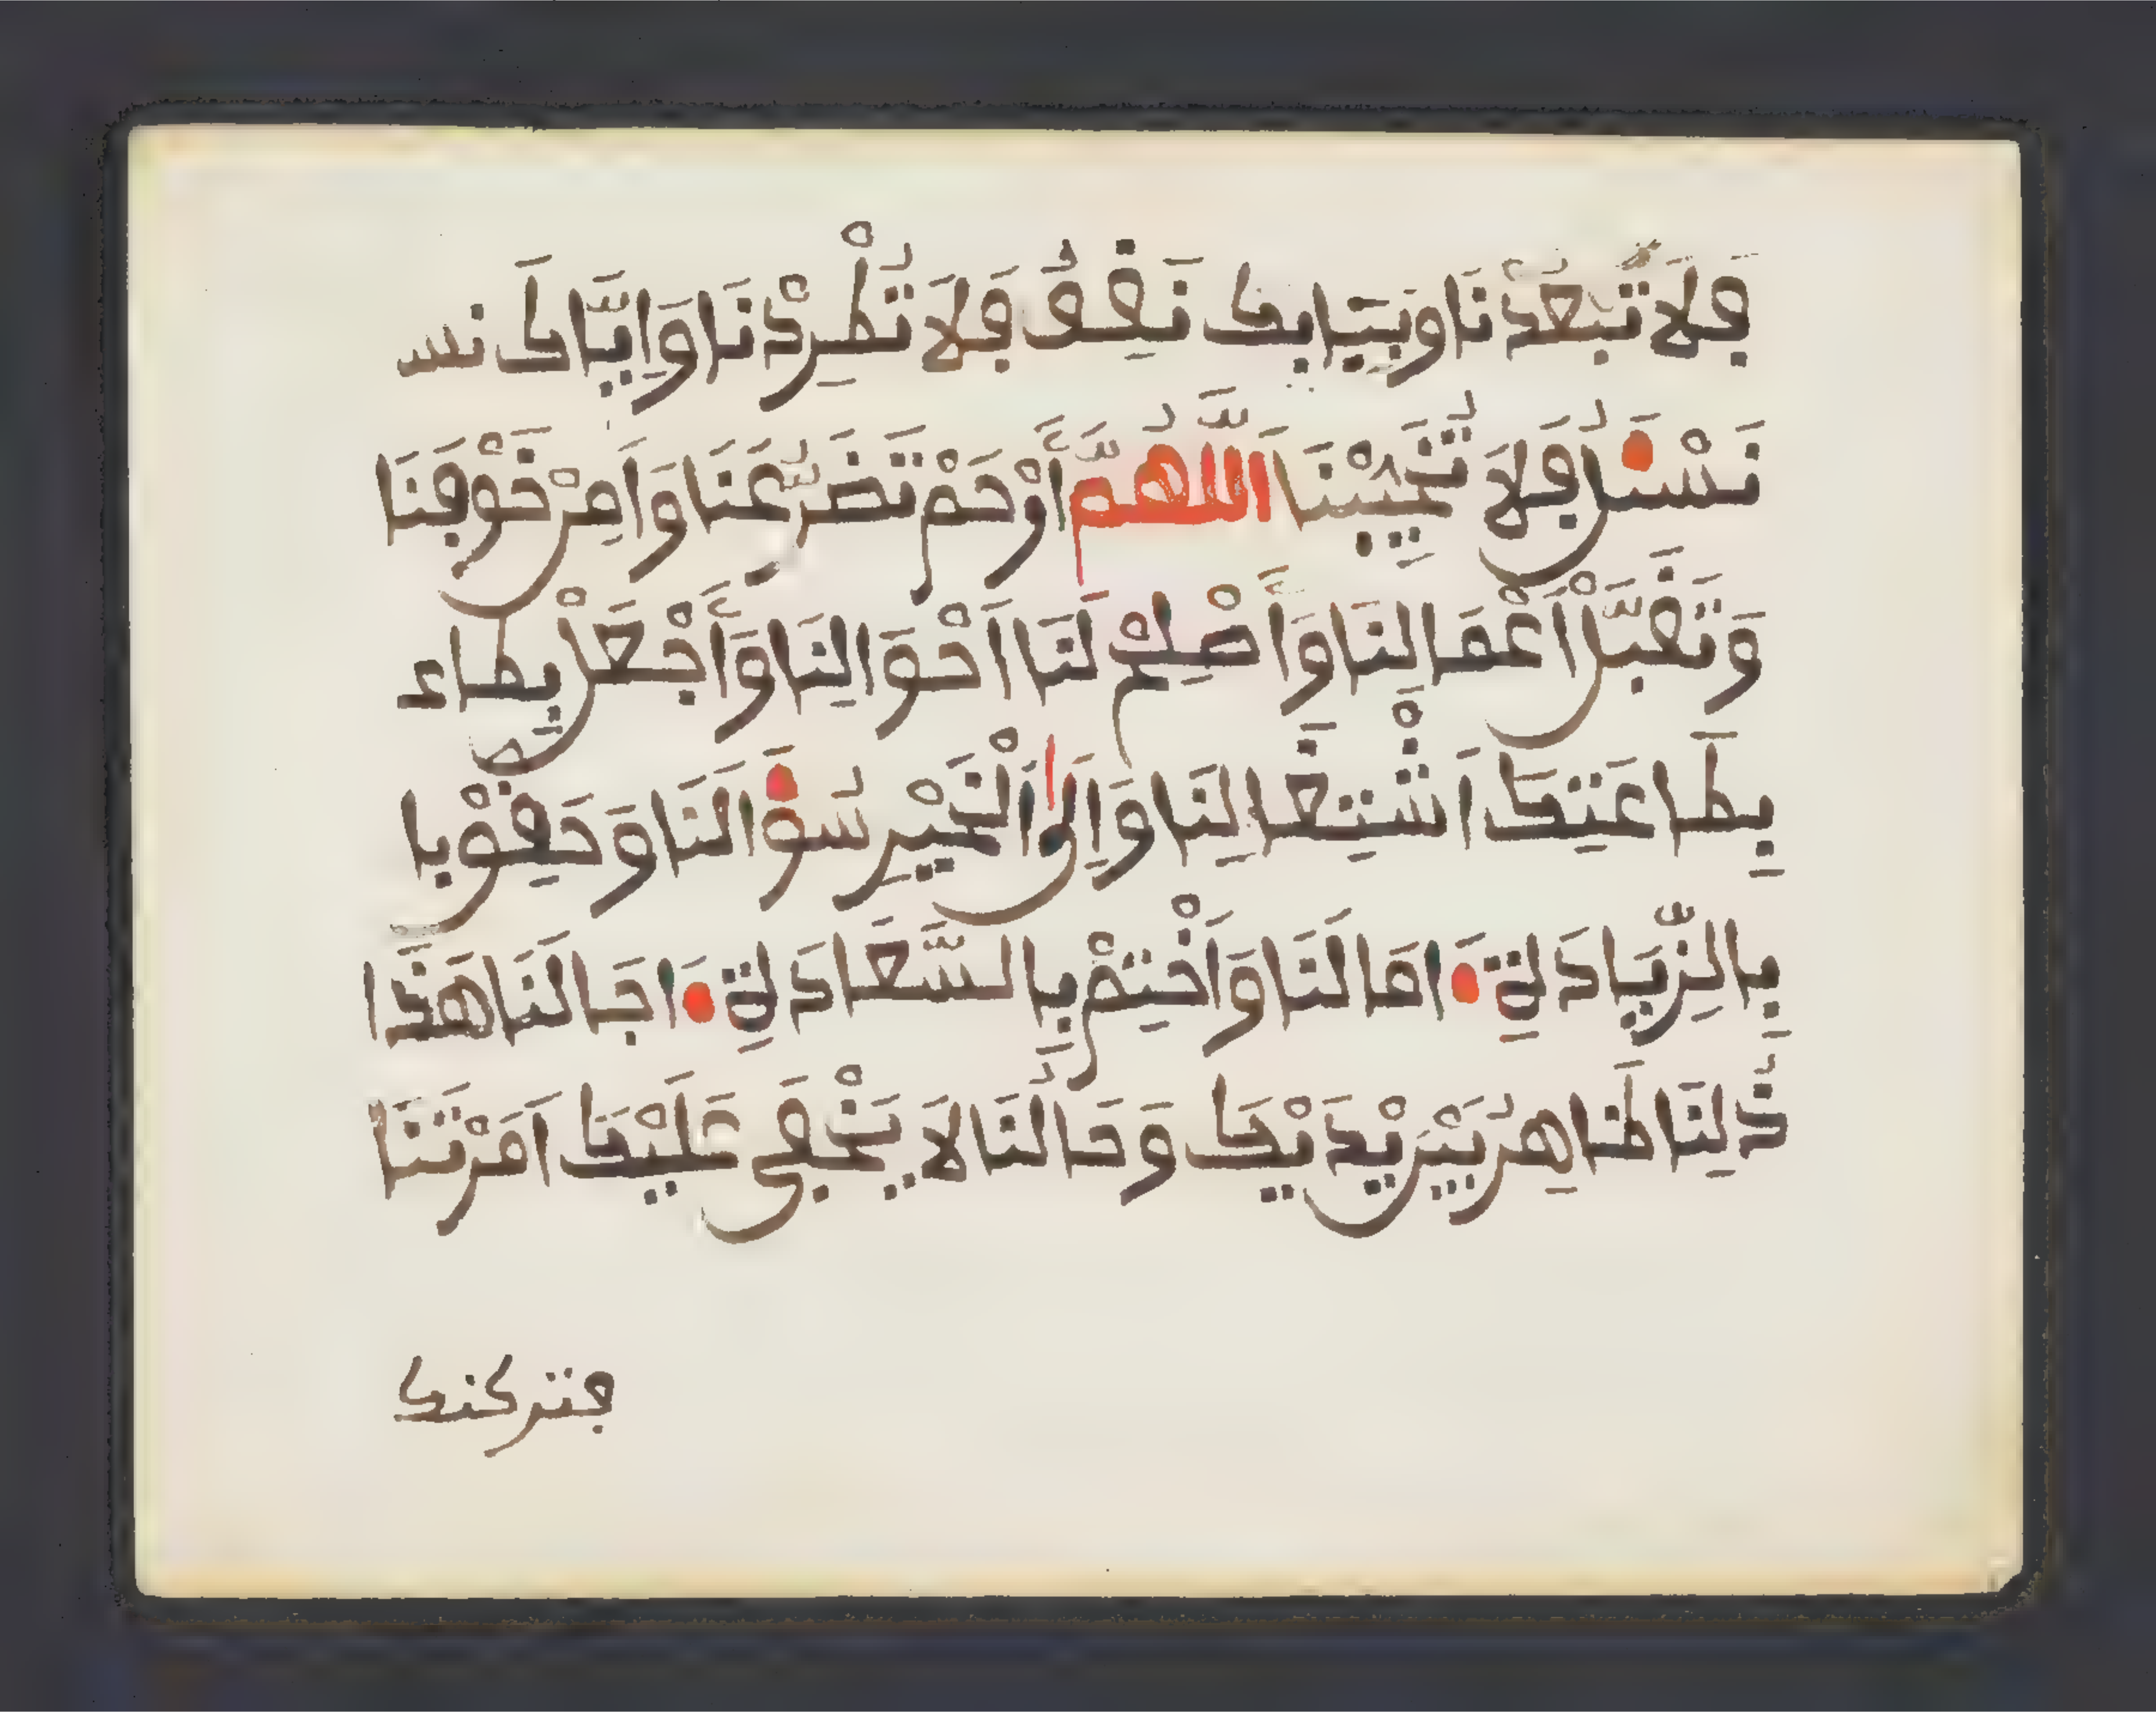 فَلَا تُبْعِدْنَا وَبِبَابِكَ نَقِفُ فَلَا تَطْرُدْنَا وَإِيَّاكَ نس
نَسْـَٔلُ فَلَا تُخَيِّبْنَا اَللَّهُمَّ اَرْحَمْ تَضَرُّعَنَا وَءَامِنْ خَوْفَنَا
وَتَقَبَّلْ أَعْمَالَنَا وَاَصْلِحْ لَنَا أَحْوَالَنَا وَاَجْعَلْ بطاء
بِطَاعَتِكَ اَشْتِغَالَنَا وَإِلَى اَلْخَيْرِ سُؤَالَنَا وَحَقِّقْ با
بِالزِّيَادَةِ ءَامَالَنَا وَاَخْتِمْ بِالسَّعَادَةِ ءَاجَالَنَا هَذَا
ذُلُّنَا ظَاهِرٌ بَيْنَ يَدَيْكَ وَحَالُنَا لَا يَخْفَى عَلَيْكَ أَمَرْتَنَا
فتركنا